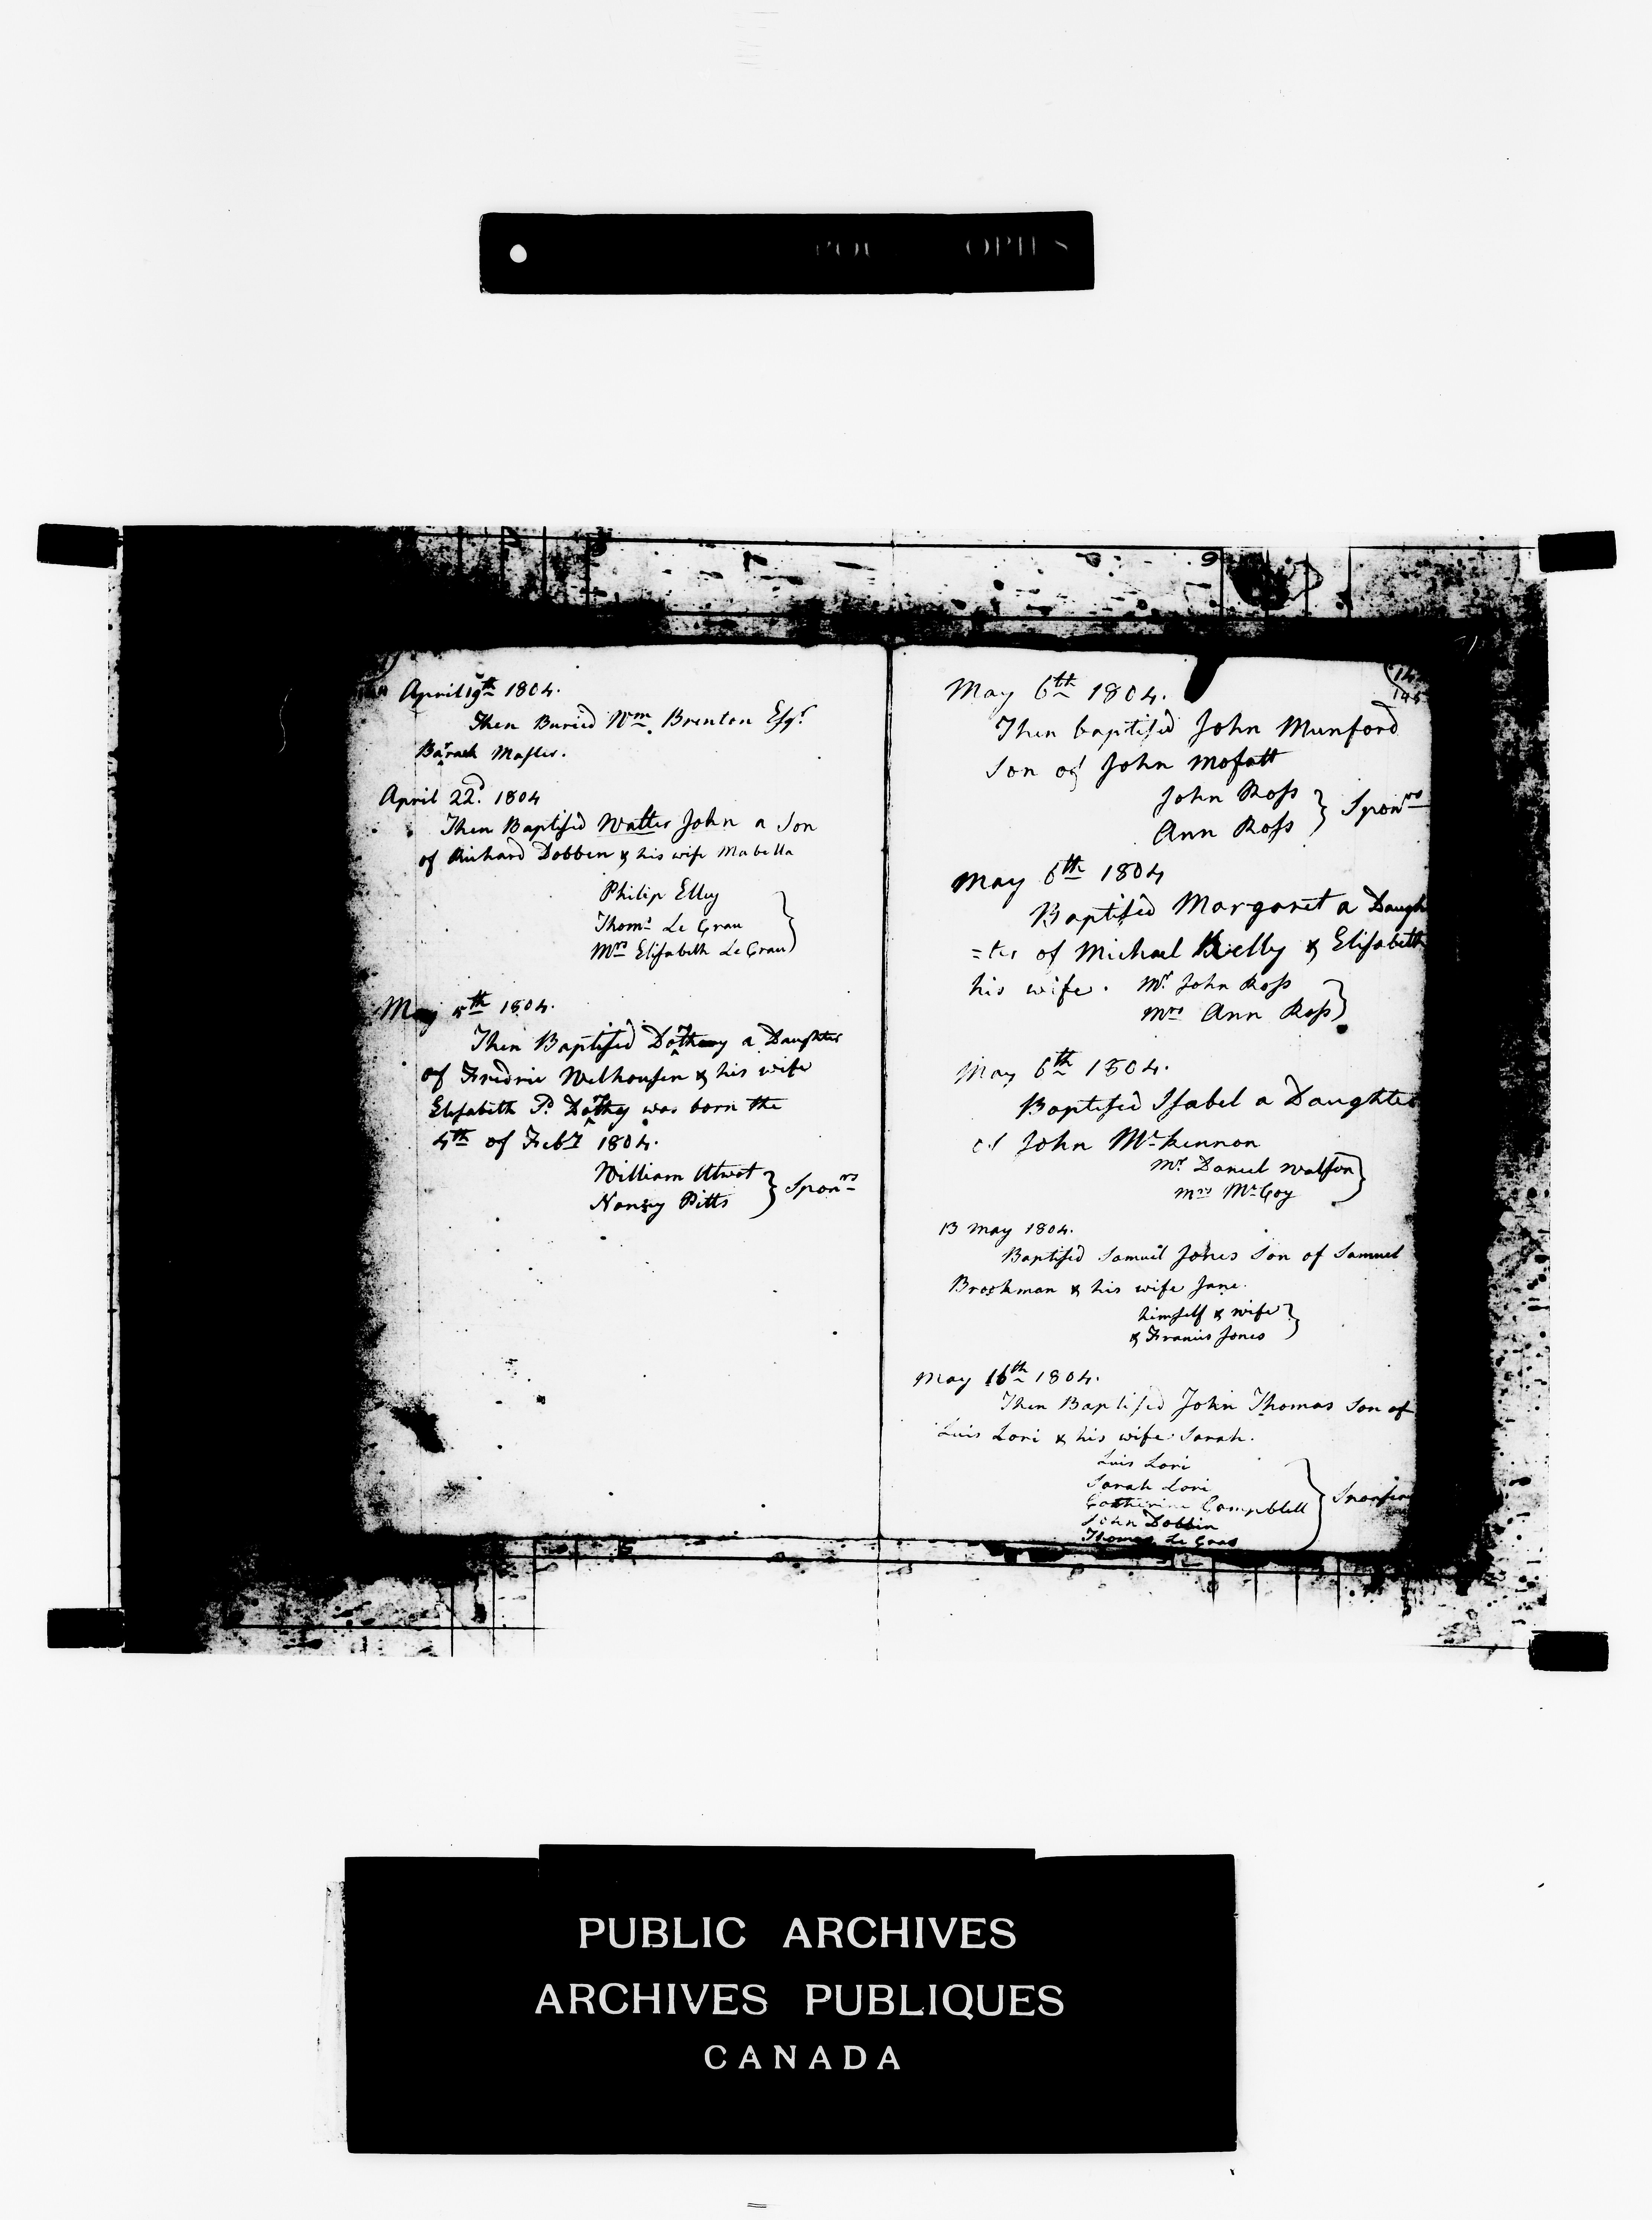 April 19th 1804.
Then Buried Wm. Brenton Esqr
Barack Master.
April 22d. 1804
Then Baptised Walter John a Son
of Richard Dobben & his wife Mabella
Philip Elley
Thoms Le Grau
Mrs Elisabeth Le Grau
May 5th 1804.
Then Baptised Dorthy a Daughter
of Fredric Welhousen & his wife
Elisabeth Sd Dorthy was born the
4th of Febry 1804.
William Atwot
Nancy Pitts } Sponrs
145
May 6th 1804.
Then baptised John Munford
Son of John Mofatt
John Ross
Ann Ross } Sponrs
May 6th 1804
Baptised Margaret a Daugh
=ter of Michael Kelly & Elisabeth
his wife. Mr John Ross
Mrs Ann Ross
May 6th 1804.
Baptised Isabel a Daughter
of John McKennon
Mr Daniel Watson
Mrs McCoy
13 May 1804.
Baptised Samuel Jones Son of Samuel
Brookman & his wife Jane.
himself & wife
& Francis Jones
May 16th 1804.
Then Baptised John Thomas Son of
Luis Lori & his wife Sarah.
Luis Lori
Sarah Lori
Catherine Campblell
John Dobbin
Thomas Le Grau
PUBLIC ARCHIVES
ARCHIVES PUBLIQUES
CANADA